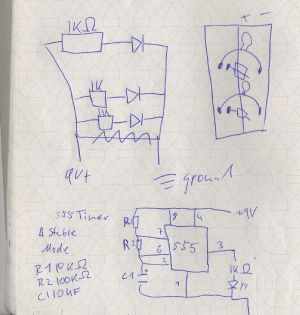 1KΩ
+ -
1K
1K
9V+
ground
555 Timer
Astable
Mode
R1 10KΩ
R2 100KΩ
C1 10µF
R1
R2
C1
8
4
7
6
2
555
3
1
+9V
1KΩ